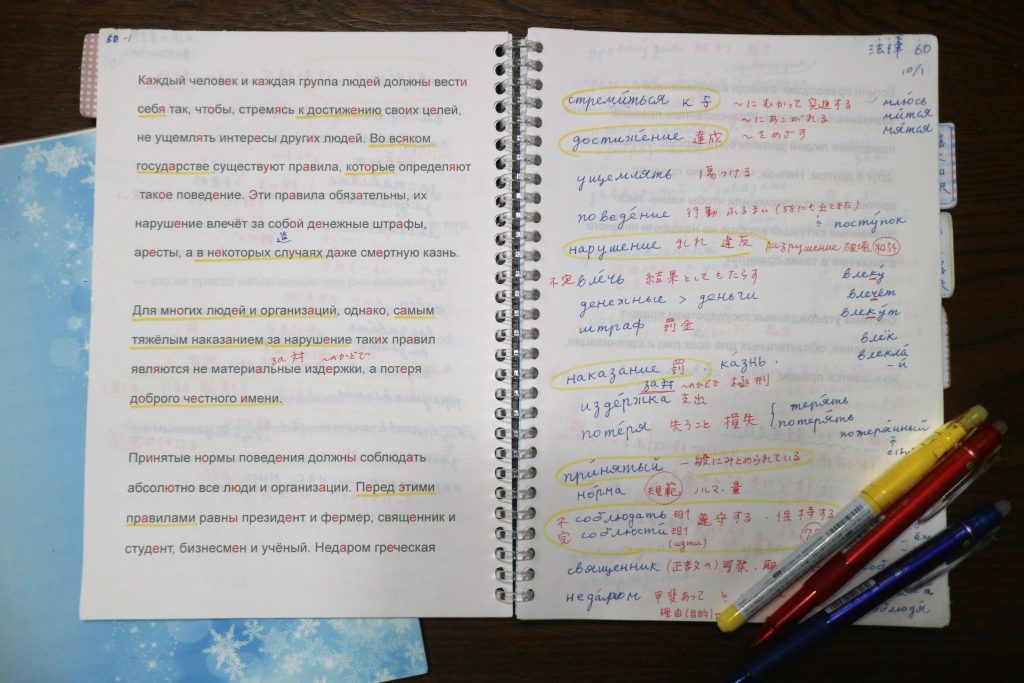 60-1
Каждый человек и каждая группа людей должны вести
себя так, чтобы, стремясь к достижению своих целей,
не ущемлять интересы других людей. Во всяком
государстве существуют правила, которые определяют
такое поведение. Эти правила обязательны, их
нарушение влечёт за собой денежные штрафы,
аресты, а в некоторых случаях даже смертную казнь.
Для многих людей и организаций, однако, самым
тяжёлым наказанием за нарушение таких правил
за対 〜のかどで
являются не материальные издержки, а потеря
доброго честного имени.
Принятые нормы поведения должны соблюдать
абсолютно все люди и организации. Перед этими
правилами равны президент и фермер, священник и
студент, бизнесмен и учёный. Недаром греческая
法律 60
10/1
стреми́ться к 〜にむかって突進する
〜にあこがれる
〜をめざす
млюсь
ми́тся
мя́тся
достиже́ние 達成
ущемлять 傷つける
поведе́ние 行動 ふるまい (58にも出てきた)
посту́пок
нарушение 違反 разрушение 破壊
不定 вле́чь 結果としてもたらす
влеку́
влечёт
влеку́т
влёк
влекла́
денежные > деньги
штраф 罰金
наказание 罰 . ка́знь.
за対 〜のかどで 極刑
изде́ржка 支出
поте́ря 失うこと 損失
теря́ть
потеря́ть
поте́рянный
при́нятый 一般にみとめられている
но́рма 規範 ノルマ・量
不 соблюда́ть 遵守する・保持する
完 соблюсти́
(идти)
священник (正教の) 司祭
неда́ром 甲斐あって
理由(目的)